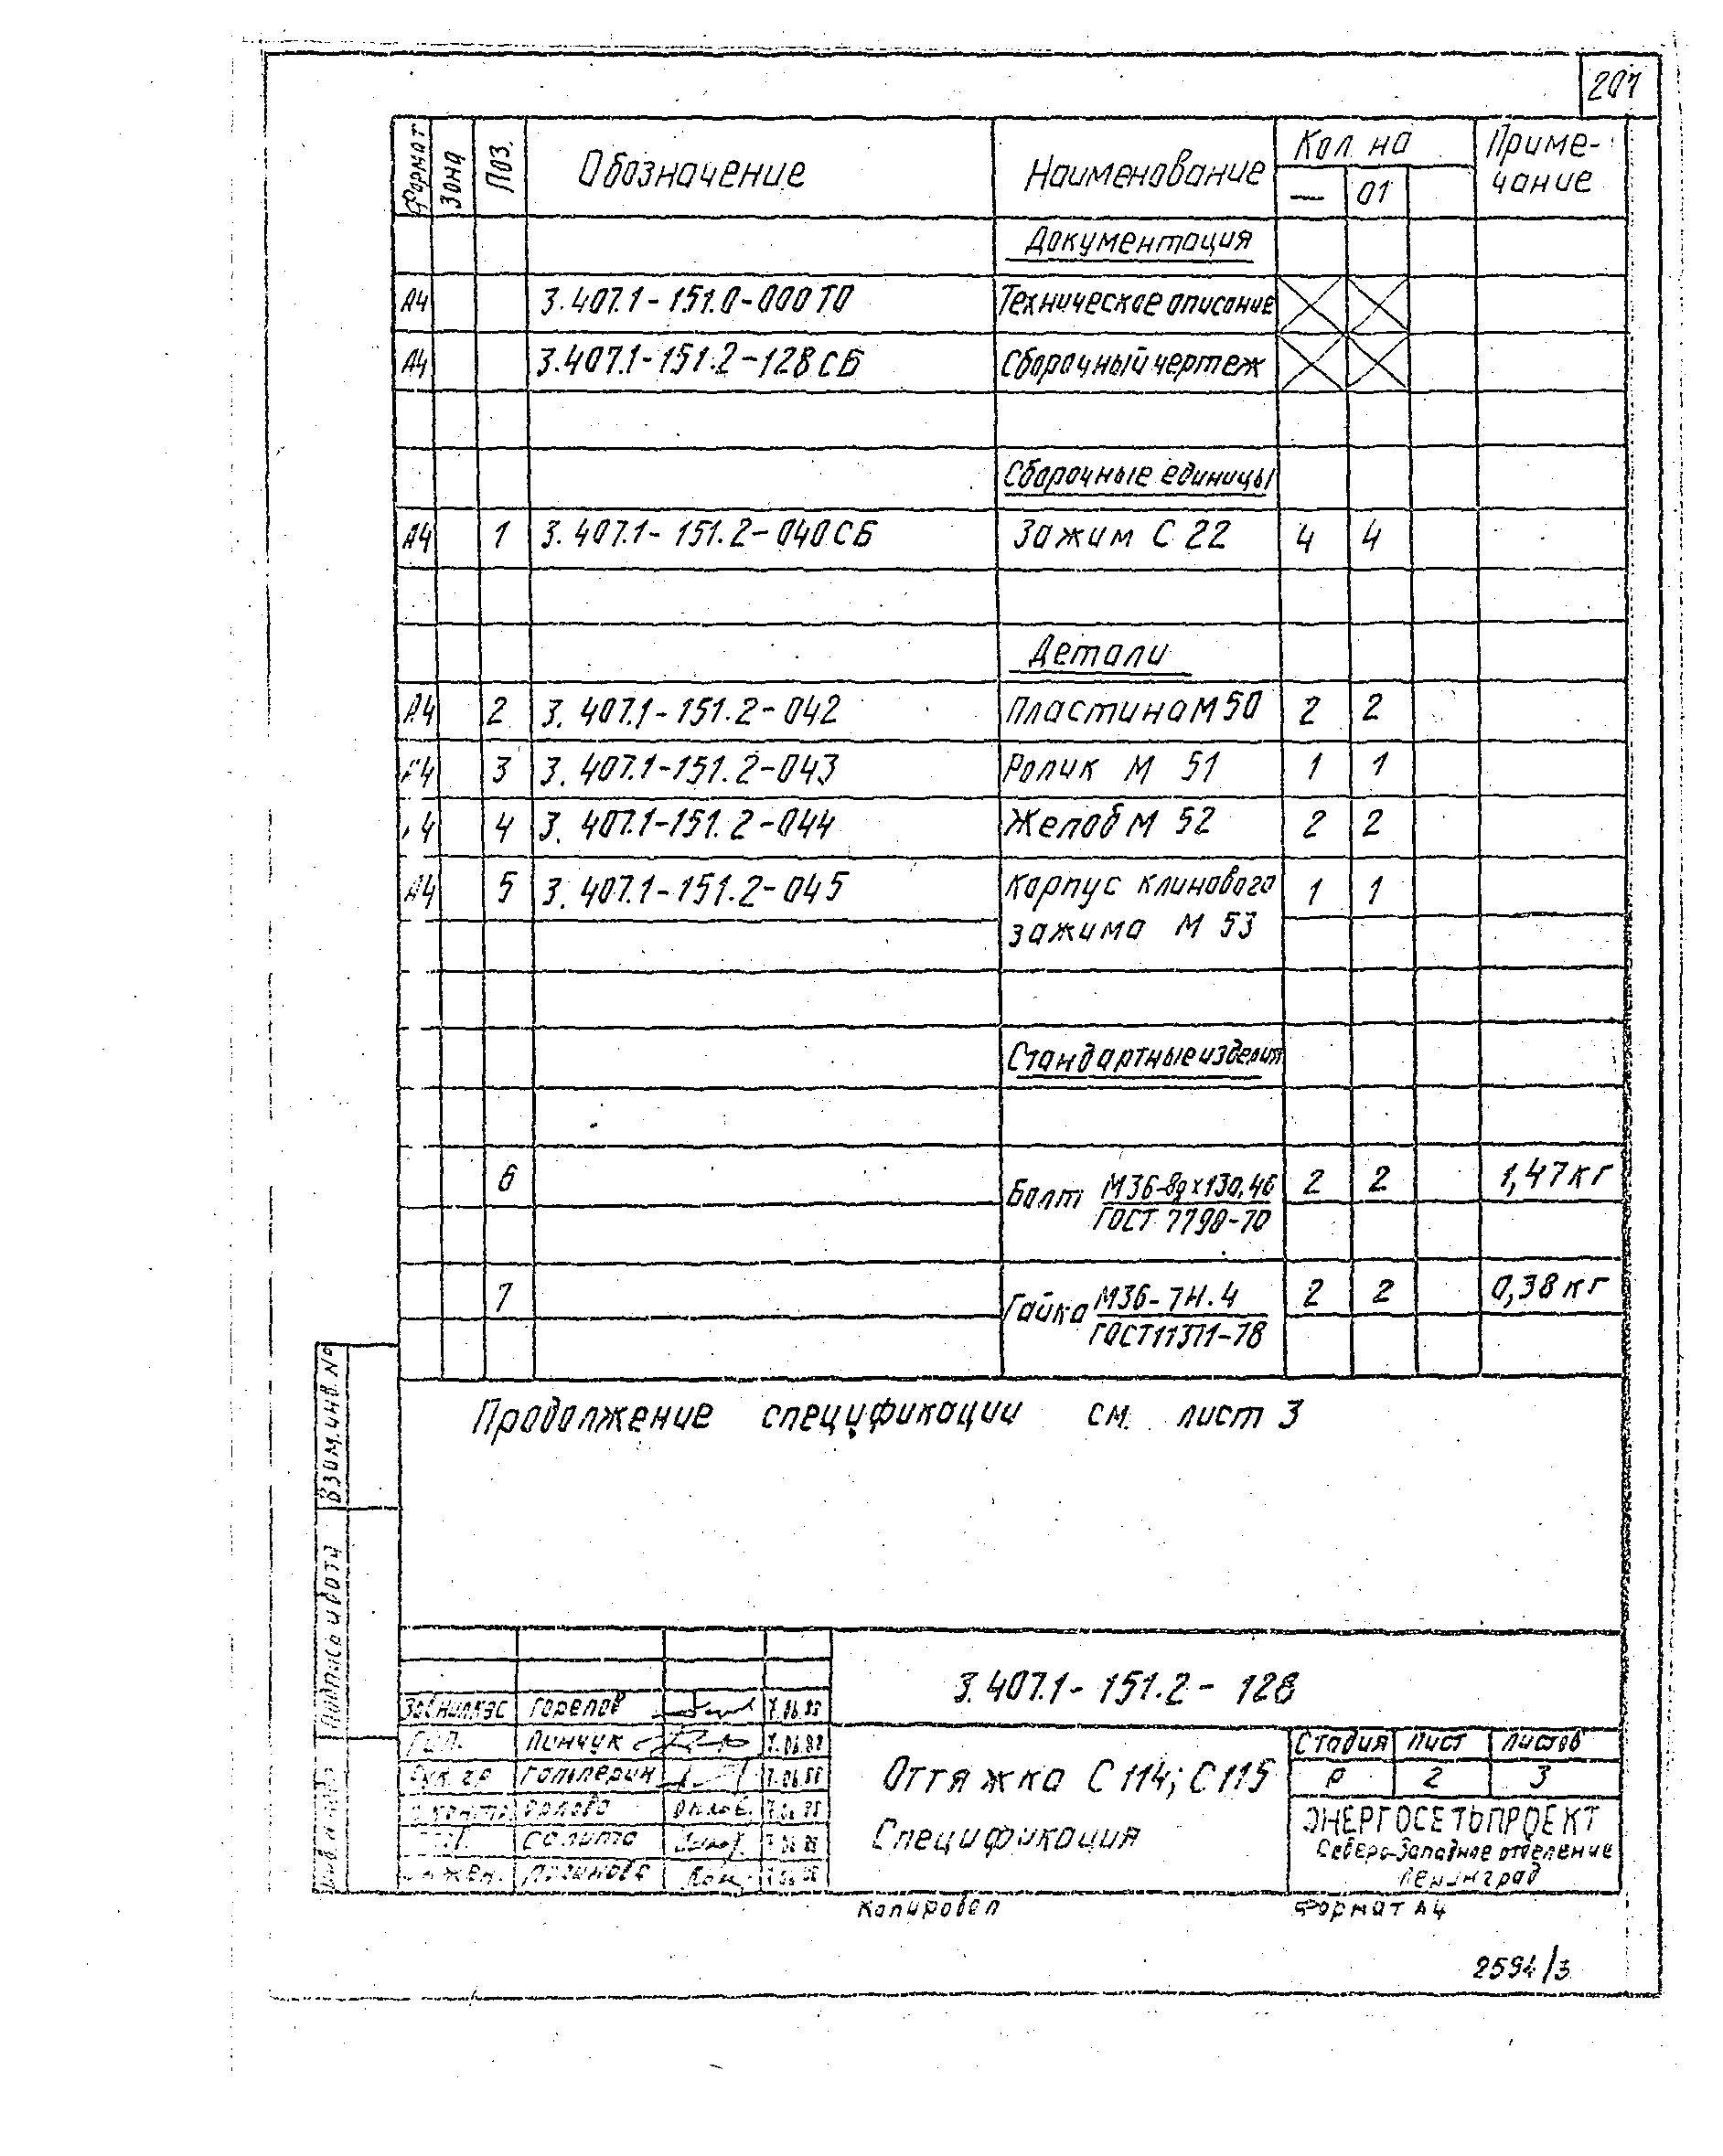 201
Формат Зона Поз. Обозначение Наименование Кол. на Приме-
чание
— 01
Документация
А4 3.407.1-151.0-000ТО Техническое описание
А4 3.407.1-151.2-128СБ Сборочный чертеж
Сборочные единицы
А4 1 3.407.1-151.2-040СБ Зажим С 22 4 4
Детали
А4 2 3.407.1-151.2-042 Пластина М 50 2 2
А4 3 3.407.1-151.2-043 Ролик М 51 1 1
4 4 3.407.1-151.2-044 Желоб М 52 2 2
А4 5 3.407.1-151.2-045 Корпус клинового 1 1
зажима М 53
Стандартные изделия
6 Болт М36-8g×130.46 2 2 1,47кг
ГОСТ 7798-70
7 Гайка М36-7Н.4 2 2 0,38кг
ГОСТ 11371-78
Продолжение спецификации см. лист 3
Взам. инв. №
Подпись и дата
3.407.1-151.2-128
Зав НИЛКЭС Горелов
ГИП. Пинчук
Рук. гр Гальперин
Н.контр. Орлова
Солита
Инжен. Логинова
Оттяжка С 114; С 115
Спецификация
Стадия Лист Листов
Р 2 3
ЭНЕРГОСЕТЬПРОЕКТ
Северо-Западное отделение
Ленинград
Копировал Формат А4
2594/3